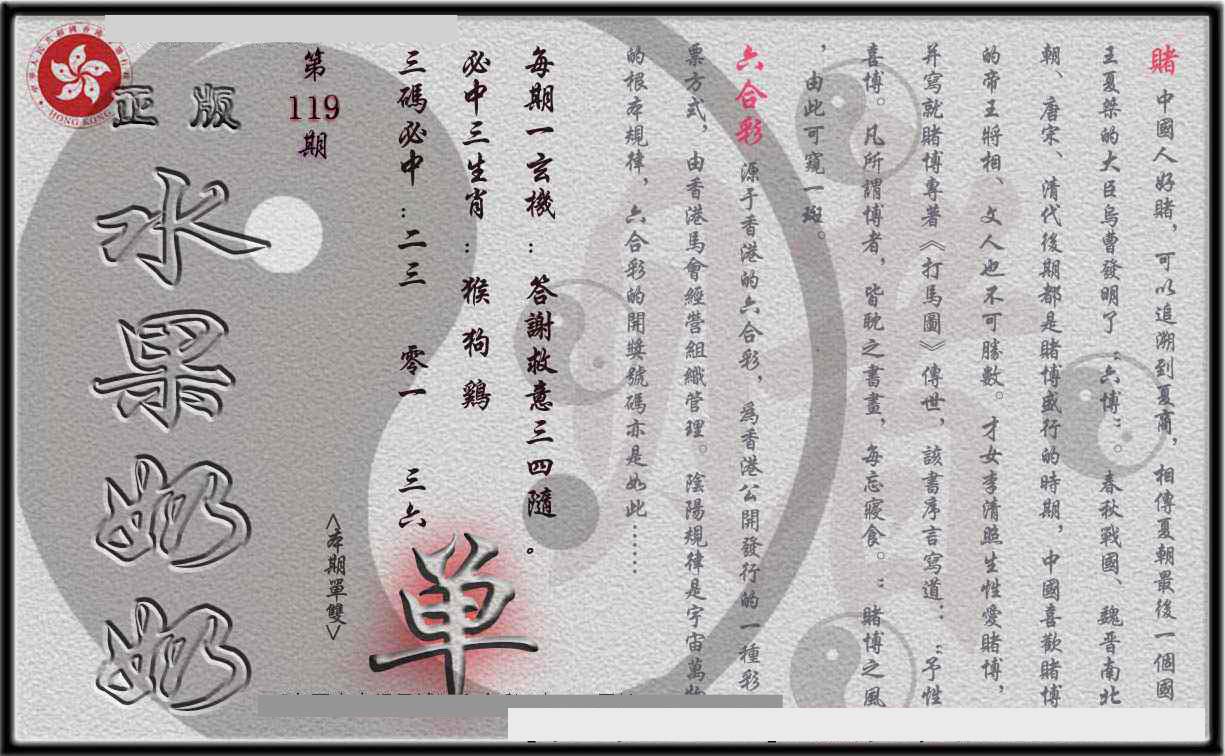 賭 中國人好賭，可以追溯到夏商，相傳夏朝最後一個國
王夏桀的大臣烏曹發明了“六博”。春秋戰國、魏晋南北
朝、唐宋、清代後期都是賭博盛行的時期，中國喜歡賭博
的帝王將相、文人也不可勝數。才女李清照生性愛賭博，
并寫就賭博專著《打馬圖》傳世，該書序言寫道：“予性
喜博。凡所謂博者，皆耽之書畫，每忘寢食。”賭博之風
，由此可窺一斑。
六合彩 源于香港的六合彩，爲香港公開發行的一種彩
票方式，由香港馬會經營組織管理。陰陽規律是宇宙萬物
的根本規律，六合彩的開獎號碼亦是如此……
每期一玄機：答謝救意三四隨。
必中三生肖：猴 狗 鷄
三碼必中：二三 零一 三六
<本期單雙>
单
第
119
期
正版
水果奶奶
HONG KONG